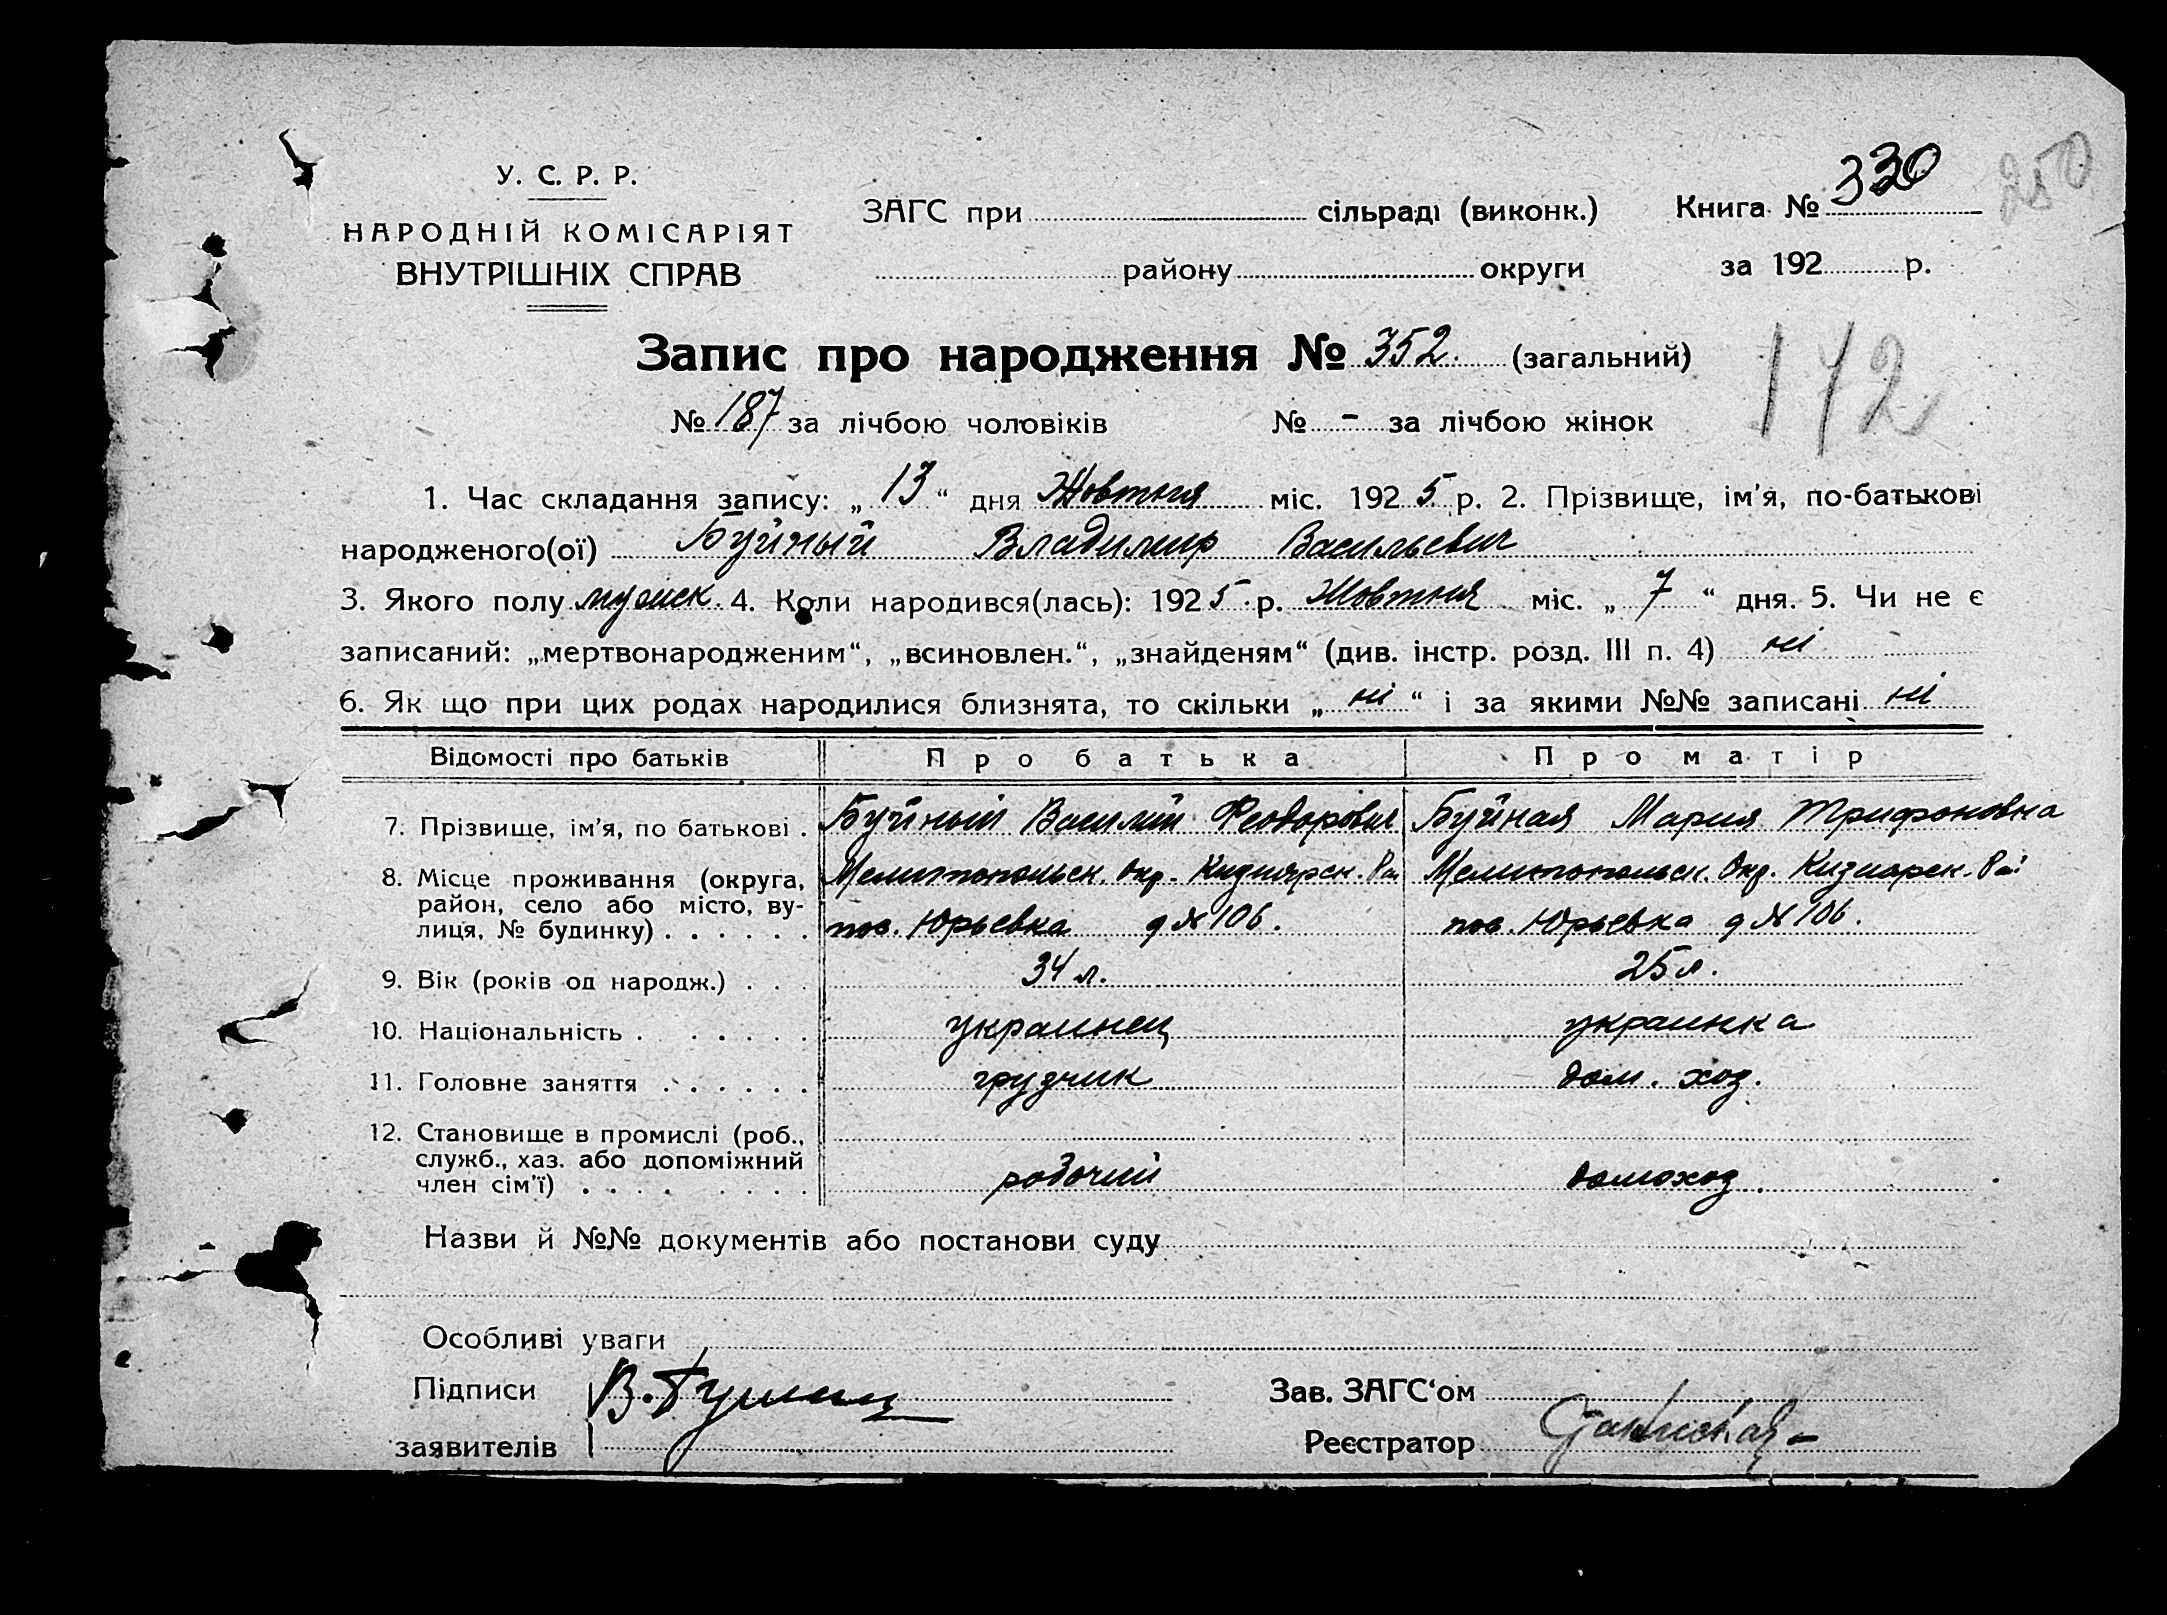 У. С. Р. Р.
НАРОДНІЙ КОМІСАРІЯТ
ВНУТРІШНІХ СПРАВ
ЗАГС при сільраді (виконк.)
району округи
Книга № 330
за 192 р.
250
Запис про народження № 352. (загальний)
172
№ 187 за лічбою чоловіків № - за лічбою жінок
1. Час складання запису: „ 13 “ дня Жовтня міс. 1925 р. 2. Прізвище, ім'я, по-батькові
народженого(ої) Буйный Владимир Васильевич
3. Якого полу мужск. 4. Коли народився(лась): 1925 р. Жовтня міс. „ 7 “ дня. 5. Чи не є
записаний: „мертвонародженим“, „всиновлен.“, „знайденям“ (див. інстр. розд. III п. 4) ні
6. Як що при цих родах народилися близнята, то скільки „ ні “ і за якими №№ записані ні
Відомості про батьків Про батька Про матір
7. Прізвище, ім'я, по батькові . Буйный Василий Феодорович Буйная Мария Трифоновна
8. Місце проживання (округа, Мелитопольск. Окр. Кизиярск. Ра Мелитопольск. Окр. Кизиярск. Рай
район, село або місто, ву-
лиця, № будинку) . . . . . . пос. Юрьевка д № 106. пос. Юрьевка д № 106.
9. Вік (років од народж.) . . . 34 л. 25 л.
10. Національність . . . . . . . украинец украинка
11. Головне заняття . . . . . . грузчик дом. хоз.
12. Становище в промислі (роб.,
служб., хаз. або допоміжний
член сім'ї) . . . . . . . . рабочий домохоз.
Назви й №№ документів або постанови суду
Особливі уваги
Підписи В.
заявителів
Зав. ЗАГС‘ом
Реєстратор